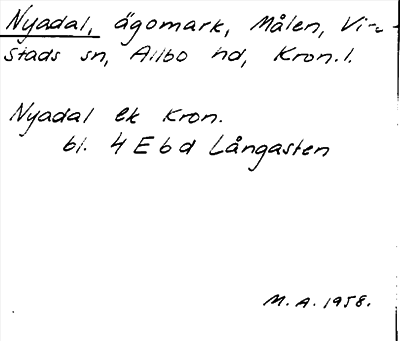 Nyadal, ägomark, Målen, Vir-
stads sn, Allbo hd, Kron. l.
Nyadal ek Kron.
bl. 4 E b d Långasten
M. A. 1958.